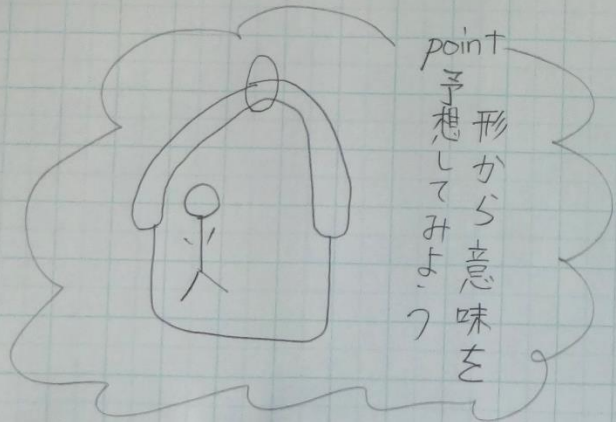 point
形から意味を
予想してみよう